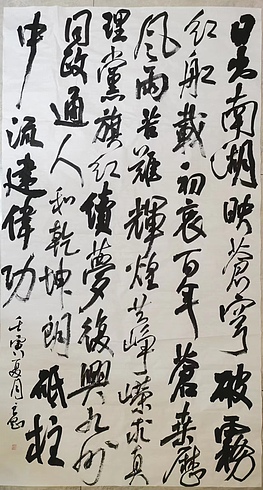 日出南湖映苍穹破雾
红船载初衷百年苍桑历
风雨苦难辉煌共峥嵘求真
理党旗红续梦复兴九州
同政通人和乾坤朗砥柱
中流建伟功
壬寅夏月